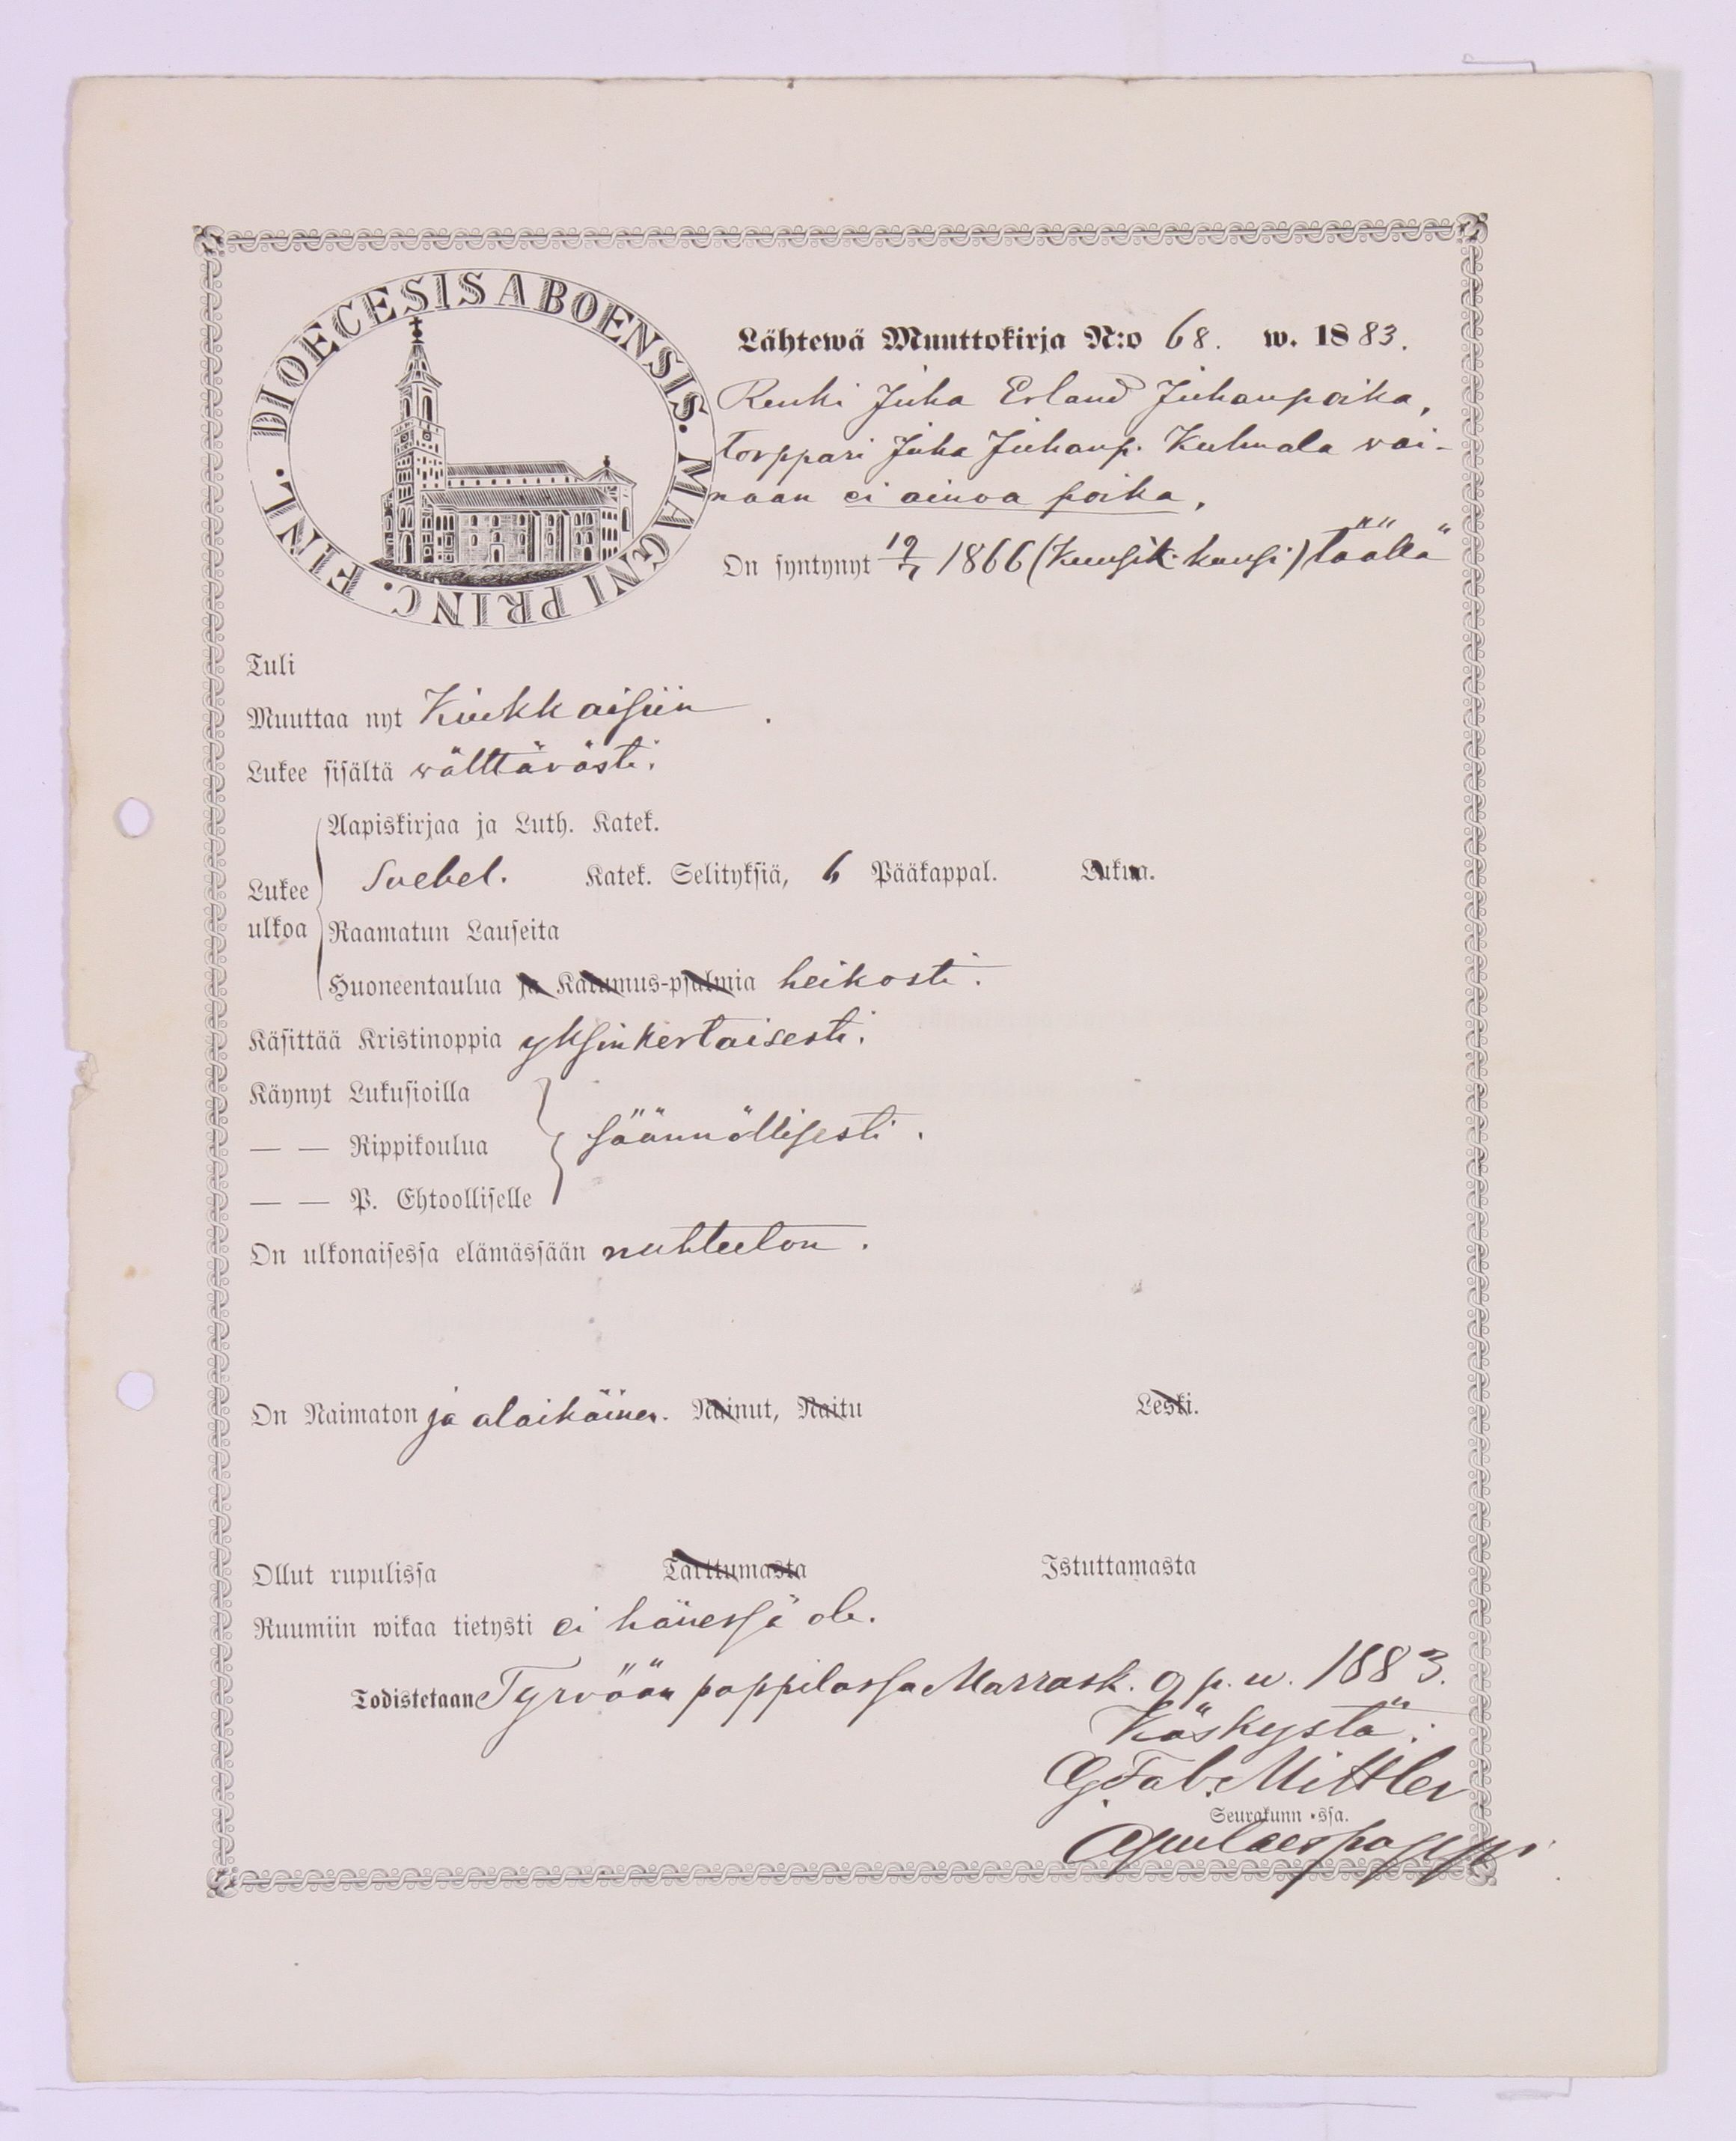 DIOECESIS ABOENSIS. MAGNI PRINC. FINL.
Lähtewä Muuttokirja N:o 68. w. 1883.
Renki Juha Erland Juhanpoika,
torppari Juha Juhanp. Kulmala vai-
naan ei ainoa poika,
On syntynyt 19/7 1866 (kuusik. kuusi) täällä
Tuli
Muuttaa nyt Kiukkaisiin.
Lukee sisältä wälttävästi.
Aapiskirjaa ja Luth. Katek.
Lukee ulkoa Svebel. Katek. Selityksiä, 6 Pääkappal. Lukua.
Raamatun Lauseita
Huoneentaulua ja Katumus-psalmia heikosti.
Käsittää Kristinoppia yksinkertaisesti.
Käynyt Lukusioilla
— — Rippikoulua säännöllisesti.
— — P. Ehtoolliselle
On ulkonaisessa elämässään nuhteeton.
On Naimaton ja alaikäinen. Nainut, Naitu Leski.
Ollut rupulissa Tarttumasta Istuttamasta
Ruumiin wikaa tietysti ei hänessä ole.
Todistetaan Tyrvään pappilassa Marrask. 9 p. w. 1883.
Käskystä:
G. Fab. Mittler
Seurakunn ssa.